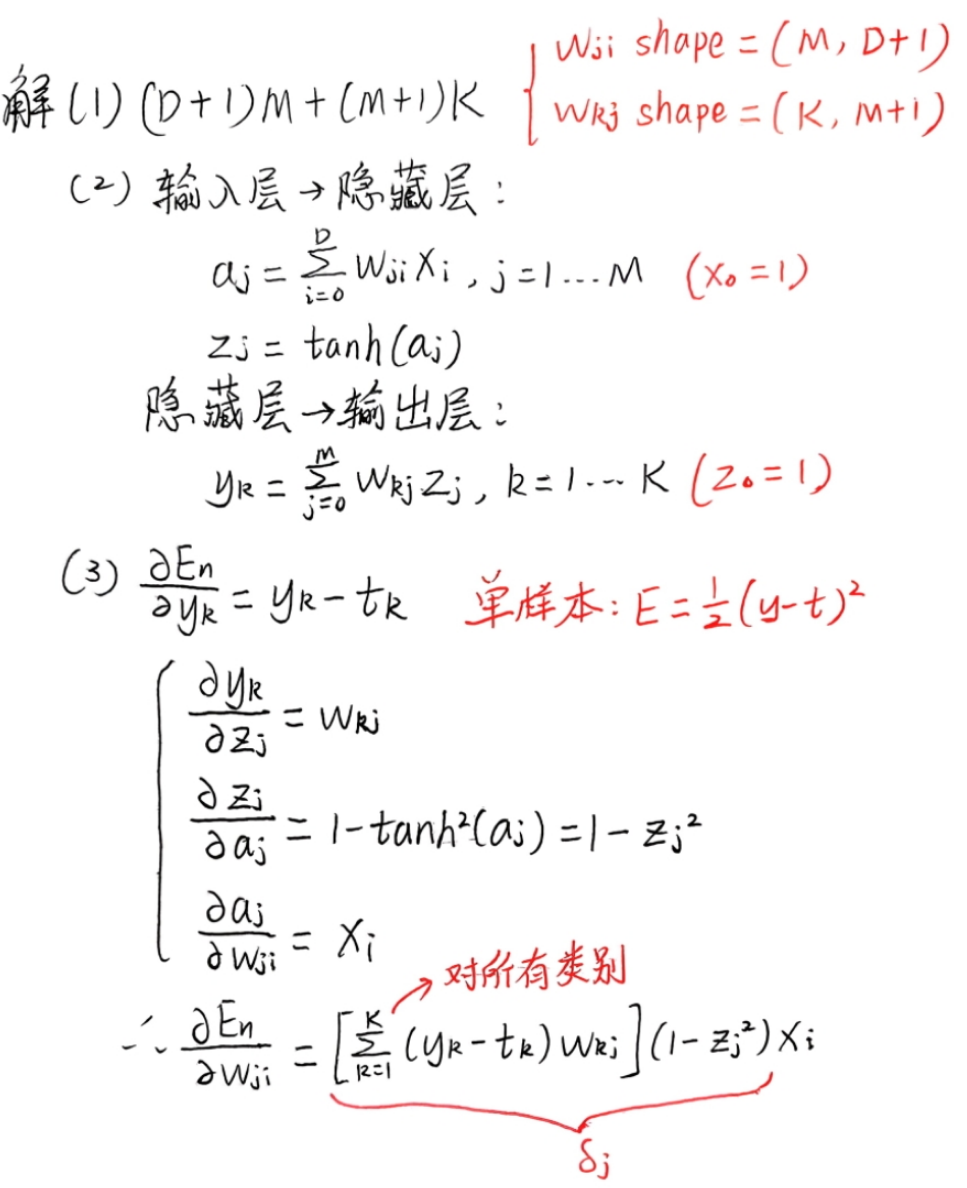 解 (1) (D+1)M+(M+1)K
Wji shape = (M, D+1)
Wkj shape = (K, M+1)
(2) 输入层→隐藏层：
aj = ∑_{i=0}^{D} Wji Xi , j=1…M (X₀=1)
Zj = tanh(aj)
隐藏层→输出层：
yk = ∑_{j=0}^{M} Wkj Zj , k=1…K (Z₀=1)
(3) ∂En/∂yk = yk - tk 单样本：E = 1/2(y-t)²
∂yk/∂Zj = Wkj
∂Zj/∂aj = 1-tanh²(aj) = 1-Zj²
∂aj/∂Wji = Xi
对所有类别
∴ ∂En/∂Wji = [∑_{k=1}^{K} (yk-tk) Wkj] (1-Zj²) Xi
δj